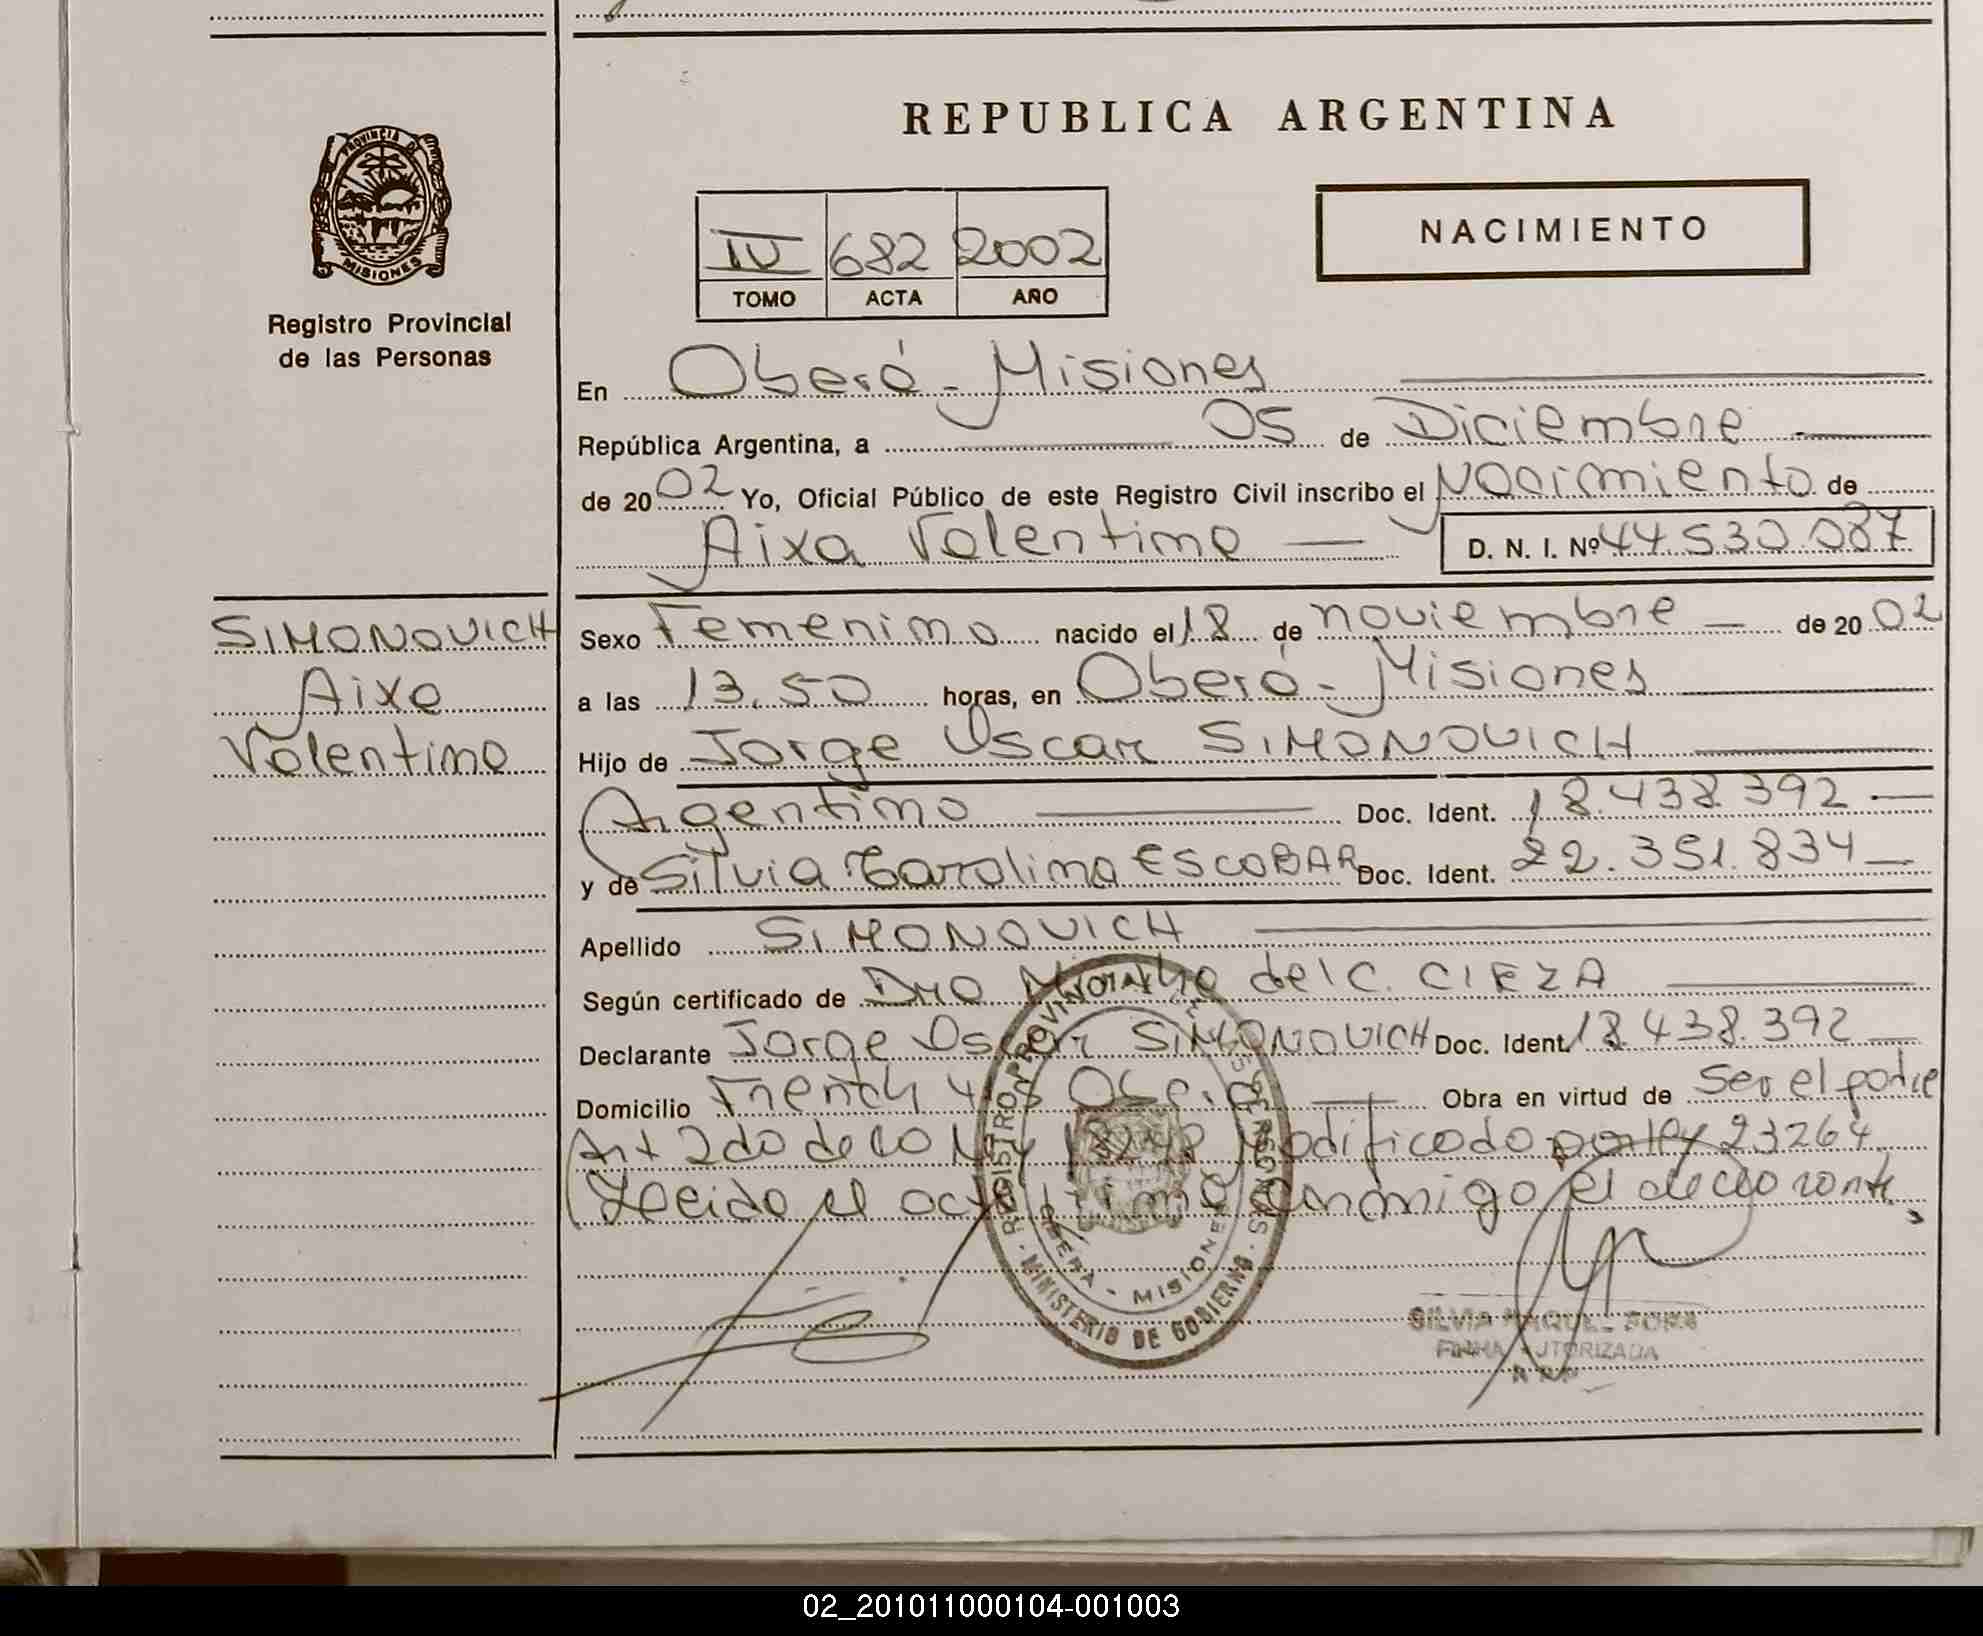 REPUBLICA ARGENTINA
PROVINCIA DE
MISIONES
Registro Provincial
de las Personas
NACIMIENTO
IV 682 2002
TOMO ACTA AÑO
En Oberá - Misiones
República Argentina, a 05 de Diciembre
de 2002 Yo, Oficial Público de este Registro Civil inscribo el Nacimiento de
Aixa Valentina D. N. I. Nº 44.530.087
SIMONOVICH
Aixa
Valentina
Sexo Femenino nacido el 18 de noviembre de 2002
a las 13.50 horas, en Oberá - Misiones
Hijo de Jorge Oscar SIMONOVICH
Argentino Doc. Ident. 18.438.392
y de Silvia Carolina ESCOBAR Doc. Ident. 22.351.834
Apellido SIMONOVICH
Según certificado de del C. CIEZA
Declarante Jorge Oscar SIMONOVICH Doc. Ident. 18.438.392
Domicilio French Oberá Obra en virtud de ser el padre
Art 2do de la Ley 18248 modificado por ley 23264
Leida el acta firma conmigo el declarante
MINISTERIO DE GOBIERNO
OBERA - MISIONES
SILVIA RAQUEL
FIRMA AUTORIZADA
02_201011000104-001003